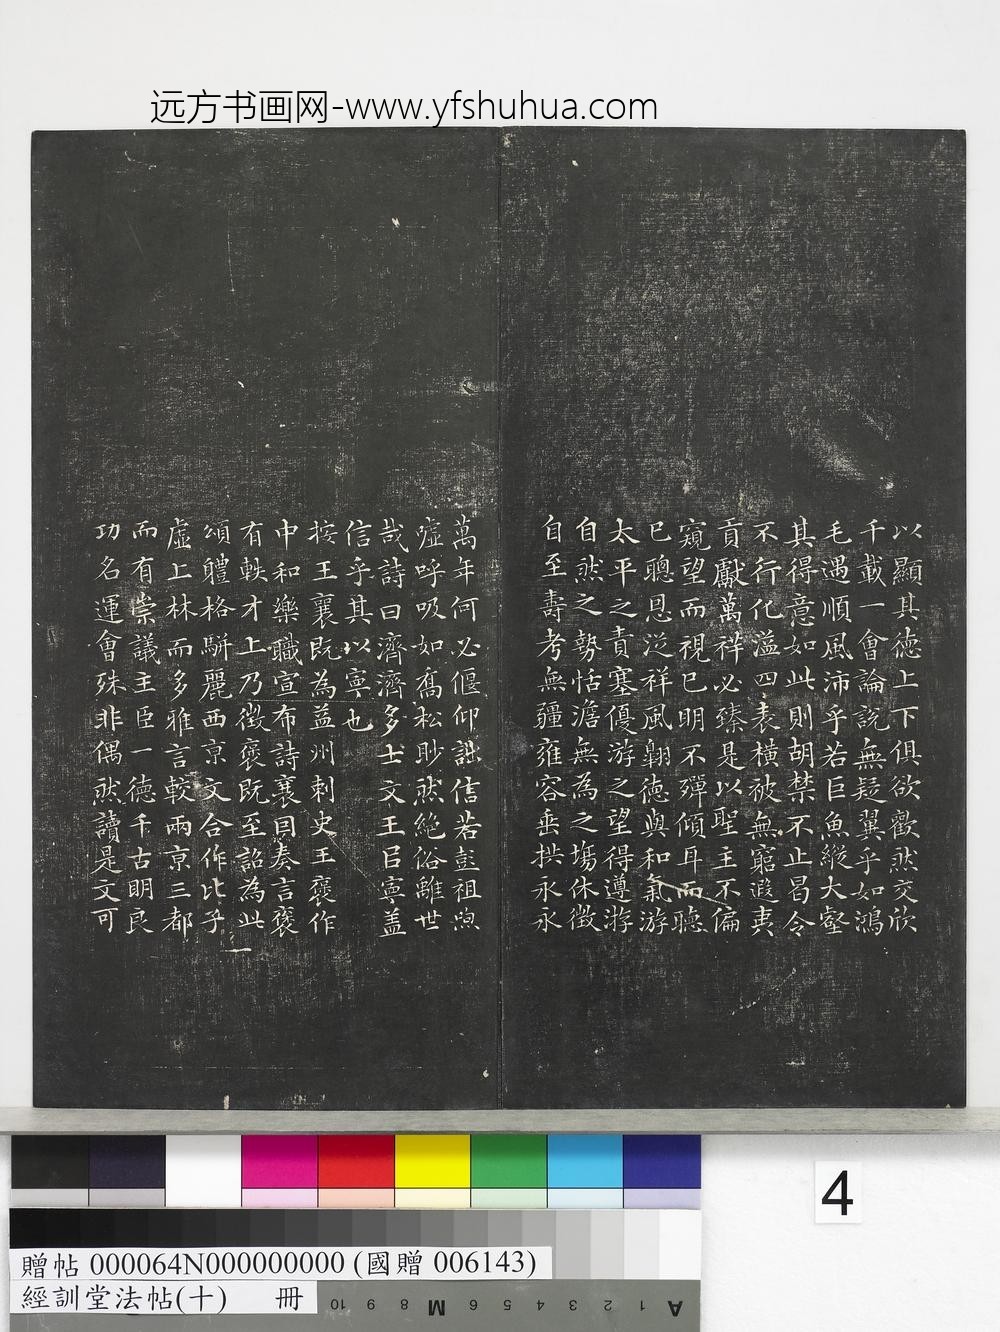 远方书画网-www.yfshuhua.com
以顯其德上下俱欲歡然交欣
千載一會論說無疑翼乎如鴻
毛遇順風沛乎若巨魚縱大壑
其得意如此則胡禁不止曷令
不行化溢四表橫被無窮遐夷
貢獻萬祥必臻是以聖主不偏
窺望而視已明不殫傾耳而聽
已聰恩從祥風翱德與和氣游
太平之責塞優游之望得遵游
自然之勢恬澹無為之場休徵
自至壽考無疆雍容垂拱永永
萬年何必偃仰詘信若彭祖呴
噓呼吸如喬松眇然絕俗離世
哉詩曰濟濟多士文王㠯寧蓋
信乎其以寧也
按王襄既為益州刺史王褒作
中和樂職宣布詩襄因奏言褒
有軼才上乃徵褒既至詔為此
頌體格駢麗西京文合作比子
虛上林而多雅言較兩京三都
而有崇議主臣一德千古明良
功名運會殊非偶然讀是文可
4
贈帖 000064N000000000 (國贈 006143)
經訓堂法帖(十) 冊
10 9 8 M 6 5 4 3 2 1 A